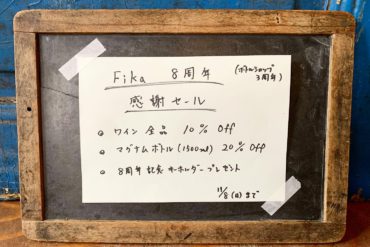 Fika 8周年
(ボトルショップ
3周年)
感謝セール
ワイン 全品 10% Off
マグナムボトル(1500ml) 20% Off
8周年記念 キーホルダープレゼント
11/8(日)まで